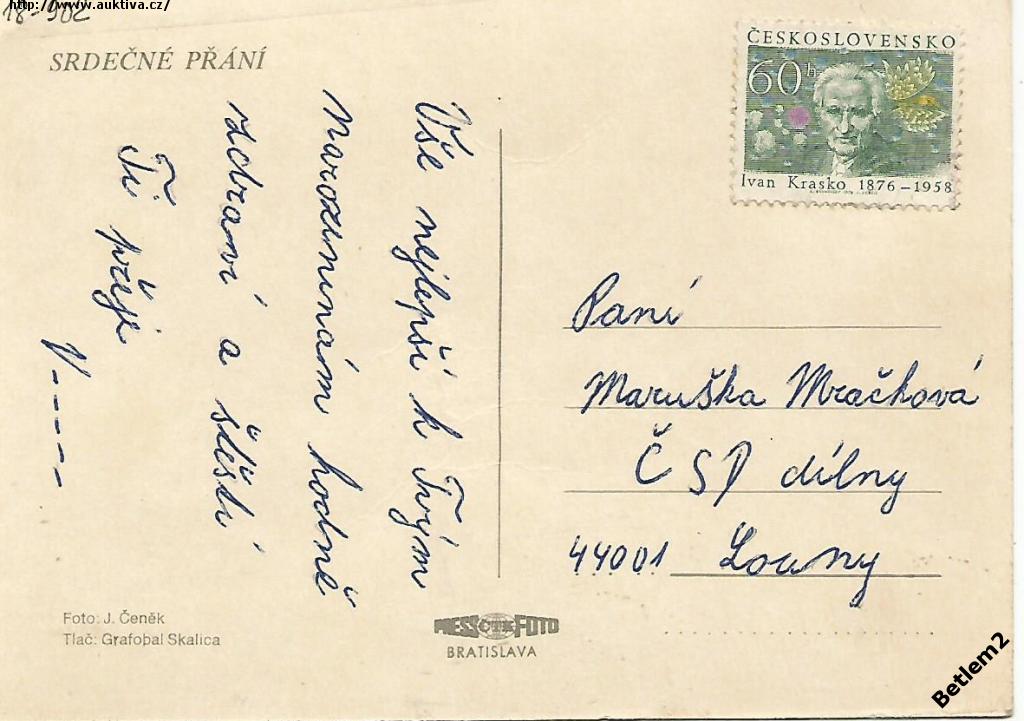 http://www.auktiva.cz/
18-902
SRDEČNÉ PŘÁNÍ
Vše nejlepší k Tvým
narozeninám hodně
zdraví a štěstí
Ti přeje
V-----
ČESKOSLOVENSKO
60h
Ivan Krasko 1876-1958
Paní
Maruška Mračková
ČSD dílny
44001 Louny
Foto: J. Čeněk
Tlač: Grafobal Skalica
PRESSFOTO
ČTK
BRATISLAVA
Betlem2